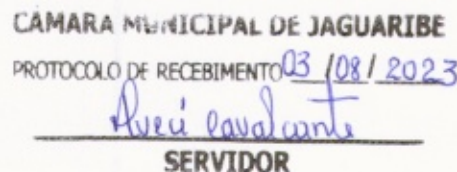 CÂMARA MUNICIPAL DE JAGUARIBE
PROTOCOLO DE RECEBIMENTO 03 / 08 / 2023
Cavalcante
SERVIDOR